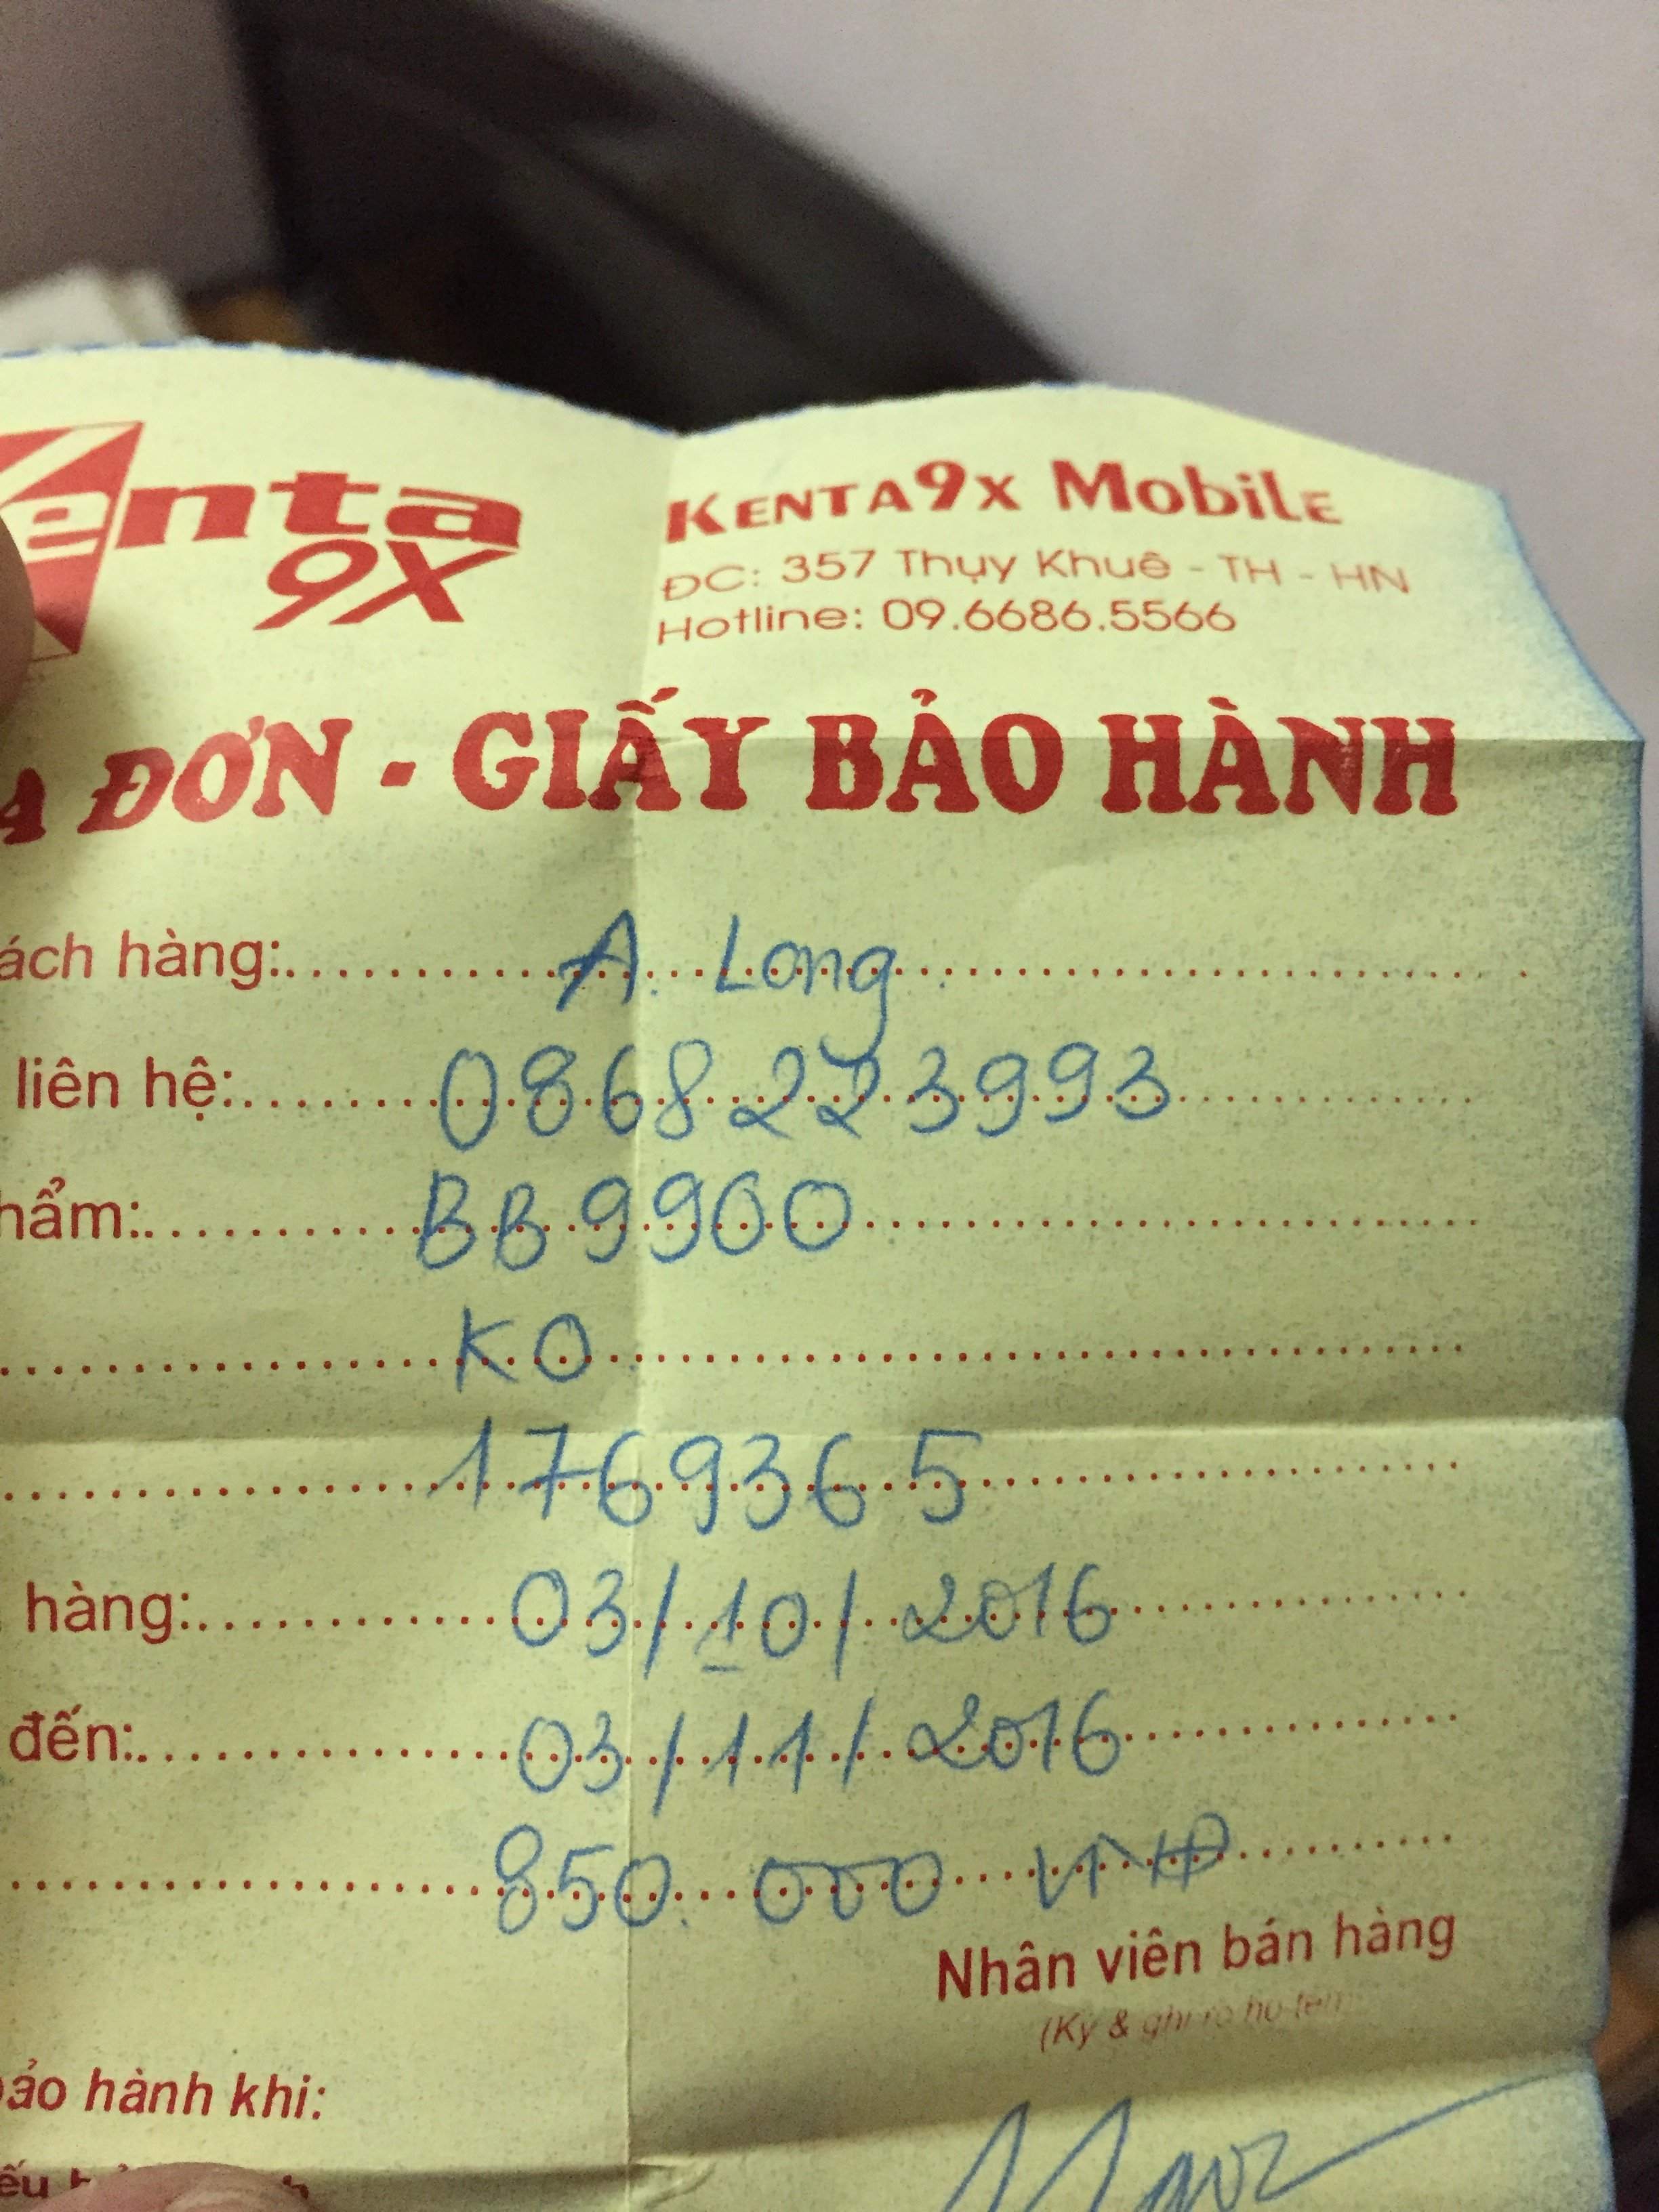 Kenta
9X
KENTA9X MobiLE
ĐC: 357 Thụy Khuê - TH - HN
Hotline: 09.6686.5566
A ĐƠN - GIẤY BẢO HÀNH
ách hàng: A. Long
liên hệ: 0868223993
hẩm: BB 9900
KO
1769365
hàng: 03/10/2016
đến: 03/11/2016
850.000 VNĐ
Nhân viên bán hàng
(Ký & ghi rõ họ tên)
ảo hành khi: